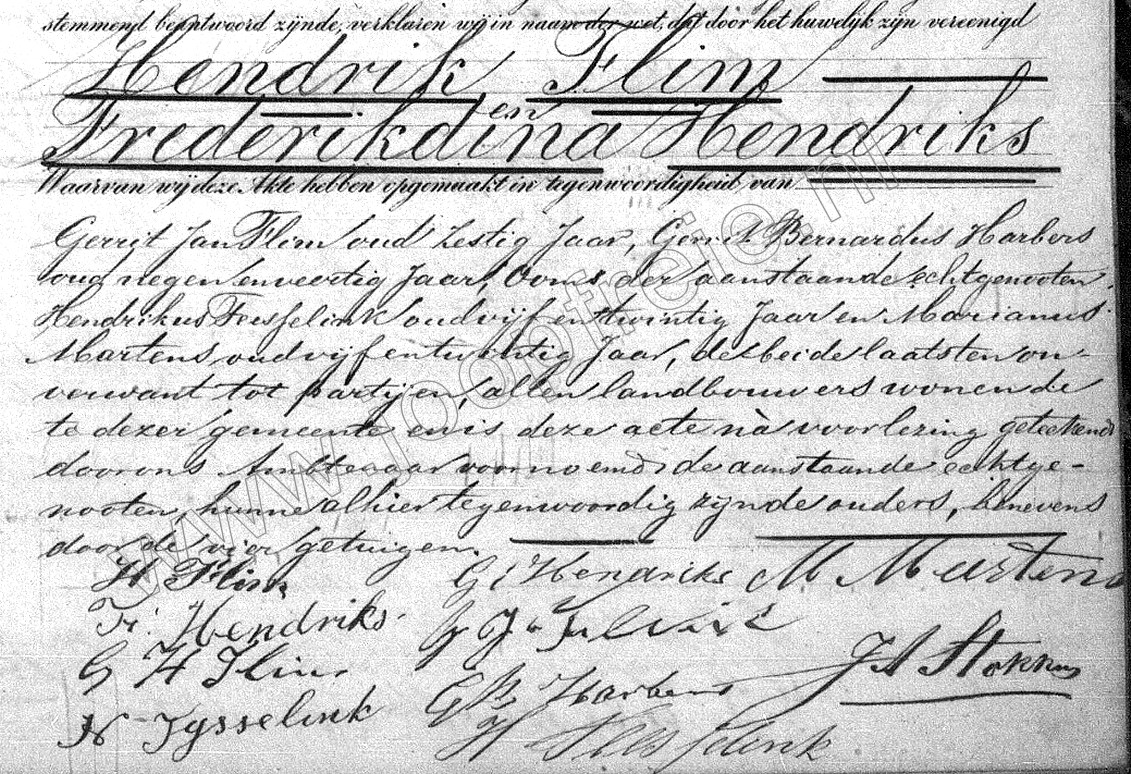 stemmend beantwoord zijnde, verklaren wij in naam der wet, dat door het huwelijk zijn vereenigd
Hendrik Flim
en
Frederikdina Hendriks
Waarvan wij deze Akte hebben opgemaakt in tegenwoordigheid van
Gerrit Jan Flim oud Zestig Jaar, Gerrit Bernardus Harbers
oud negen en veertig Jaar, Ooms der aanstaande echtgenooten,
Hendrikus Fesselink oud vijf en twintig Jaar en Marianus
Martens, oud vijf en twintig Jaar, de beide laatsten on-
verwant tot partijen, allen landbouwers wonende
te dezer gemeente en is deze acte nà voorlezing geteekend
door ons Ambtenaar voornoemd, de aanstaande echtge-
nooten, hunne alhier tegenwoordig zijnde ouders, benevens
door de vier getuigen.
H Flim
G Hendriks
M Martens
Fr. Hendriks
G J
G H Flim
J A
G B Harbers
H
www.jooptreie.nl